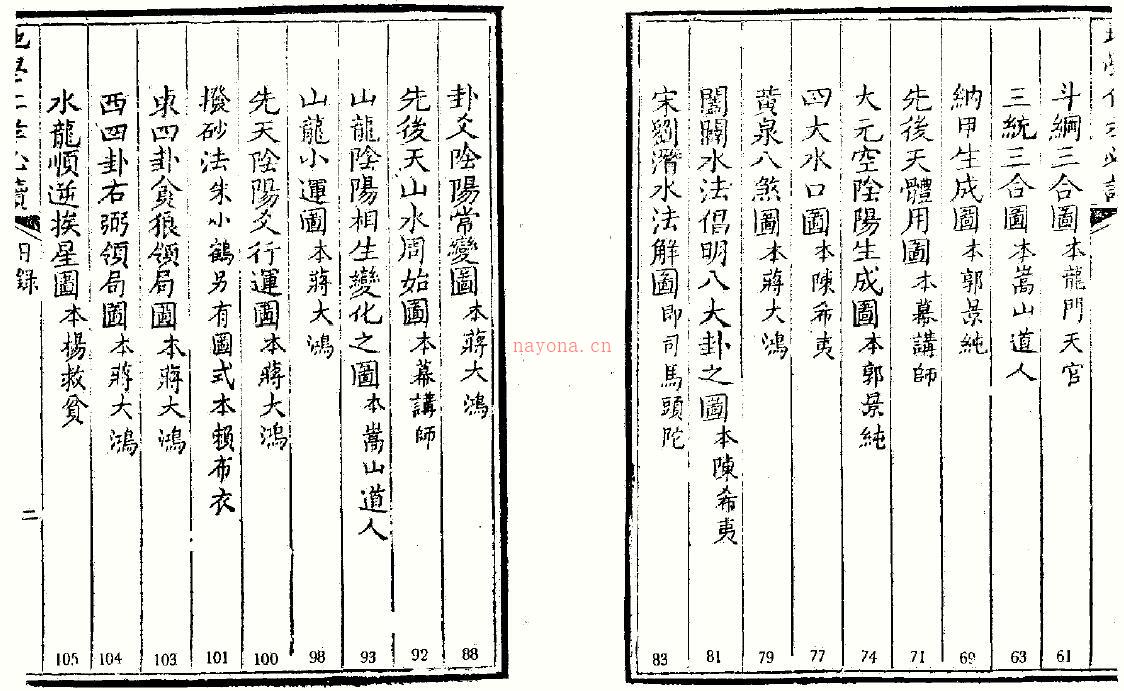 斗綱三合圖本龍門天官 61
三統三合圖本嵩山道人 63
納甲生成圖本郭景純 69
先後天體用圖本幕講師 71
大元空陰陽生成圖本郭景純 74
四大水口圖本陳希夷 77
黄泉八煞圖本蔣大鴻 79
闔闢水法倡明八大卦之圖本陳希夷 81
宋劉潛水法解圖即司馬頭陀 83
卦爻陰陽常變圖本蔣大鴻 88
先後天山水周始圖本幕講師 92
山龍陰陽相生變化之圖本嵩山道人 93
山龍小運圖本蔣大鴻 98
先天陰陽爻行運圖本蔣大鴻 100
撥砂法朱小鶴另有圖式本賴布衣 101
東四卦貪狼領局圖本蔣大鴻 103
西四卦右弼領局圖本蔣大鴻 104
水龍順逆挨星圖本楊救貧 105
目錄
二
nayona.cn